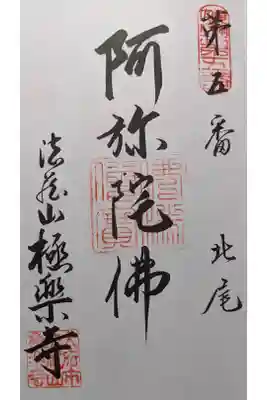 第五番 北尾
阿弥陀佛
法蔵山極樂寺